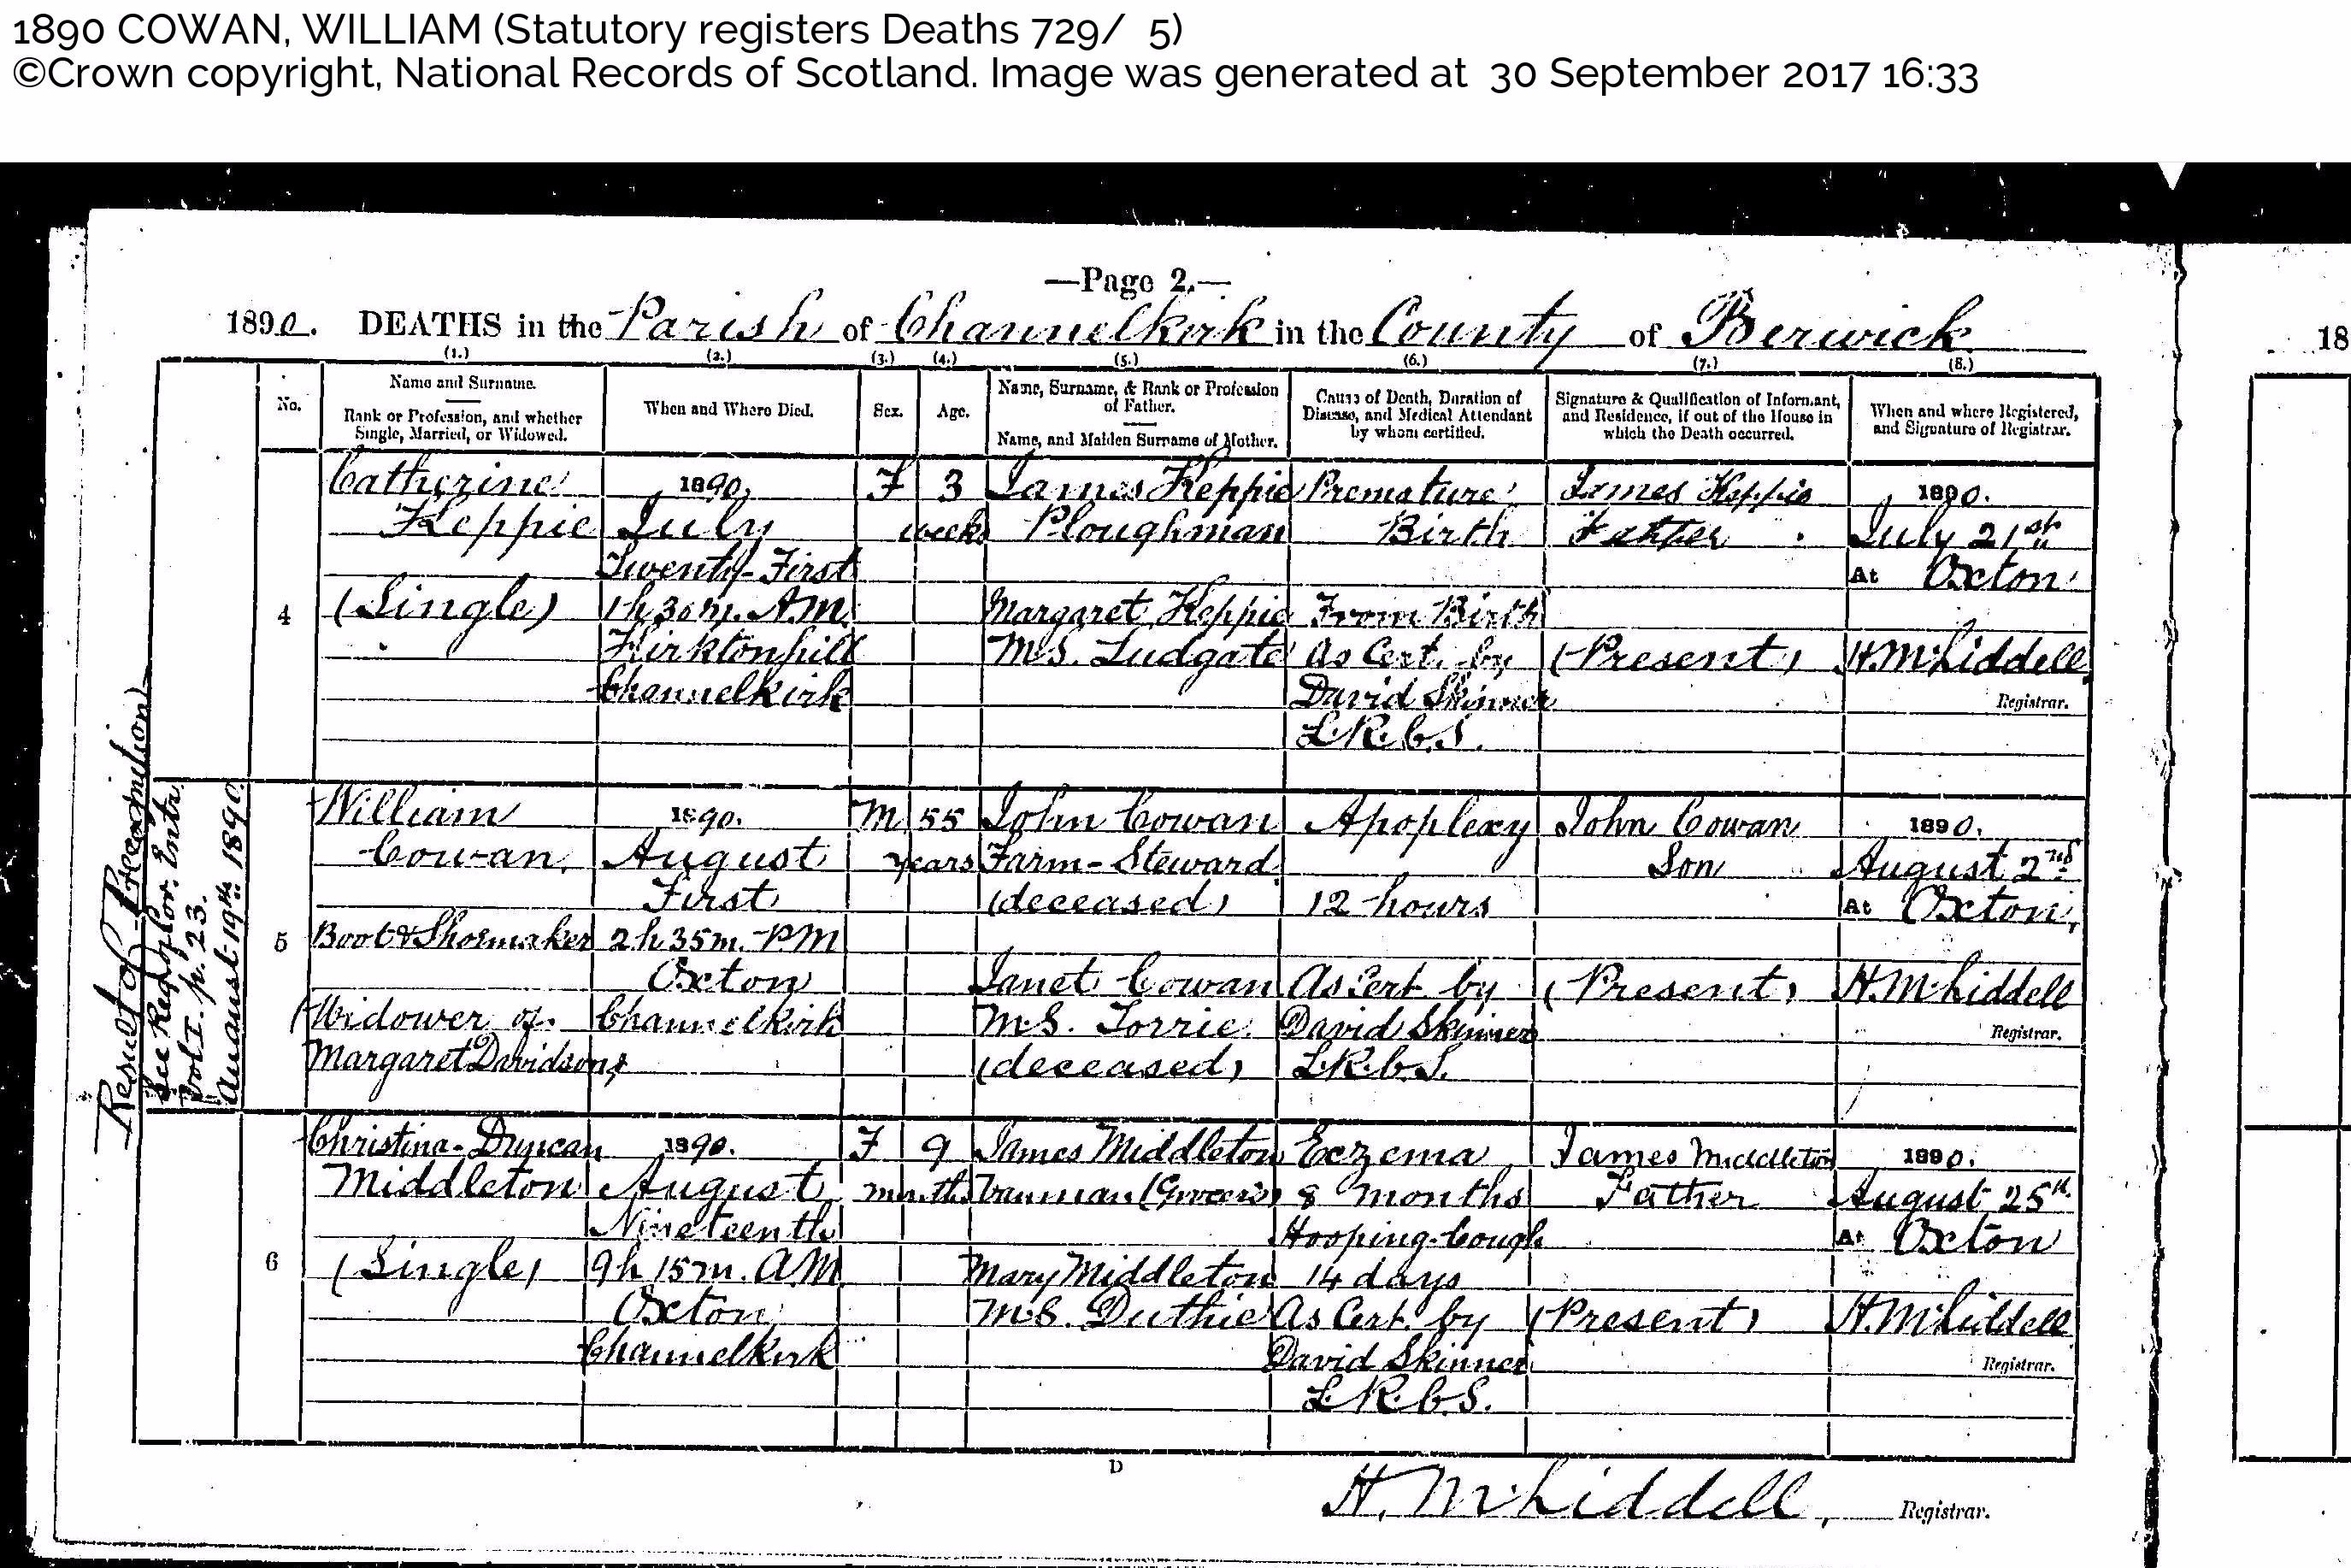 1890 COWAN, WILLIAM (Statutory registers Deaths 729/ 5)
©Crown copyright, National Records of Scotland. Image was generated at 30 September 2017 16:33
—Page 2.—
1890. DEATHS in the Parish of Channelkirk in the County of Berwick
(1.) (2.) (3.) (4.) (5.) (6.) (7.) (8.)
No.
Name and Surname.
Rank or Profession, and whether
Single, Married, or Widowed.
When and Where Died.
Sex.
Age.
Name, Surname, & Rank or Profession
of Father.
Name, and Maiden Surname of Mother.
Cause of Death, Duration of
Disease, and Medical Attendant
by whom certified.
Signature & Qualification of Informant,
and Residence, if out of the House in
which the Death occurred.
When and where Registered,
and Signature of Registrar.
4
Catherine
Keppie
(Single)
1890,
July
Twenty-First
1h 30m. A.M.
Kirktonhill
Channelkirk
F
3
weeks
James Keppie
Ploughman
Margaret Keppie
M.S. Ludgate
Premature
Birth
From Birth
As Cert. by
David Skinner
L.R.C.S.
James Keppie
Father
(Present)
1890.
July 21st
At Oxton
H. McLiddell
Registrar.
Result of Precognition)
See Reg. of Cor. Entr.
Vol I. p. 23.
August 19th 1890.
5
William
Cowan.
Boot & Shoemaker
(Widower of
Margaret Davidson)
1890.
August
First
2h 35m. P.M
Oxton
Channelkirk
M
55
years
John Cowan
Farm-Steward
(deceased)
Janet Cowan
M.S. Torrie.
(deceased)
Apoplexy
12 hours
As Cert. by
David Skinner
L.R.C.S.
John Cowan
Son
(Present)
1890.
August 2nd
At Oxton,
H. McLiddell
Registrar.
6
Christina-Duncan
Middleton
(Single)
1890.
August
Nineteenth
9h 15m. A.M.
Oxton
Channelkirk
F
9
months
James Middleton
Vanman (Grocer's)
Mary Middleton
M.S. Duthie
Eczema
8 months
Hooping-Cough
14 days
As Cert. by
David Skinner
L.R.C.S.
James Middleton
Father
(Present)
1890.
August 25th
At Oxton
H. McLiddell
Registrar.
D
H. McLiddell, Registrar.
18